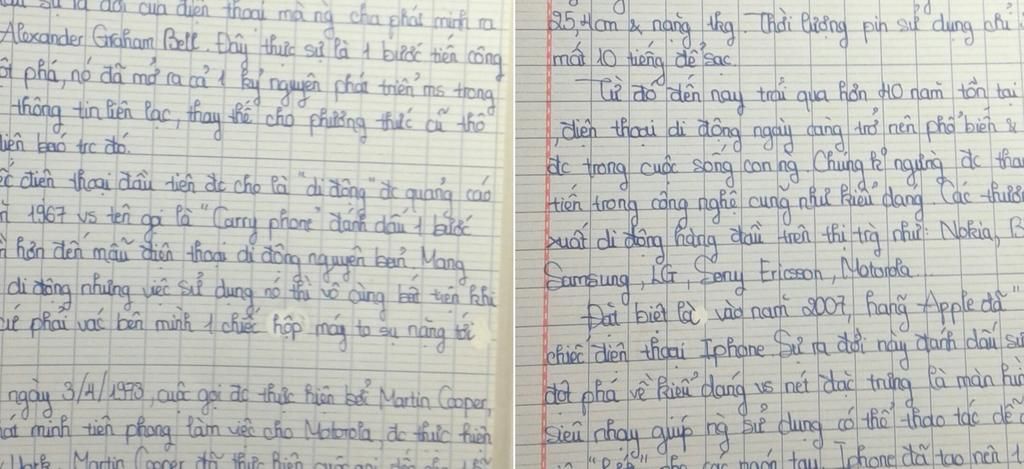 sự ra đời của điện thoại mà ng cha phát minh ra
Alexander Graham Bell. Đây thực sự là 1 bước tiến công
đột phá, nó đã mở ra cả 1 kỷ nguyên phát triển ms trong
thông tin liên lạc, thay thế cho phương thức cũ thô
liên báo trc đó.
điện thoại đầu tiên đc cho là "di động" đc quảng cáo
1967 vs tên gọi là "Carry phone" đánh dấu 1 bước
hơn đến mẫu điện thoại di động nguyên bản. Mang
di động nhưng việc sử dụng nó thì vô cùng bất tiện khi
phải vác bên mình 1 chiếc hộp máy to sụ nặng tới
ngày 3/4/1973, cuộc gọi đc thực hiện bởi Martin Cooper,
phát minh tiên phong làm việc cho Motorola, đc thực hiện
Martin Cooper đã thực hiện cuộc gọi
25,4cm & nặng 1kg. Thời lượng pin sử dụng chỉ
mất 10 tiếng để sạc.
Từ đó đến nay trải qua hơn 40 năm tồn tại
, điện thoại di động ngày càng trở nên phổ biến &
đc trong cuộc sống con ng. Chúng k ngừng đc thay
tiến trong công nghệ cũng như kiểu dáng. Các thương
xuất di động hàng đầu trên thị trg như: Nokia, B
Samsung, LG, Sony Ericsson, Motorola
Đặc biệt là vào năm 2007, hãng Apple đã "
chiếc điện thoại Iphone. Sự ra đời này đánh dấu sự
đột phá về kiểu dáng vs nét đặc trưng là màn hình
siêu nhạy giúp ng sử dụng có thể thao tác dễ
các ngón tay. Iphone đã tạo nên 1